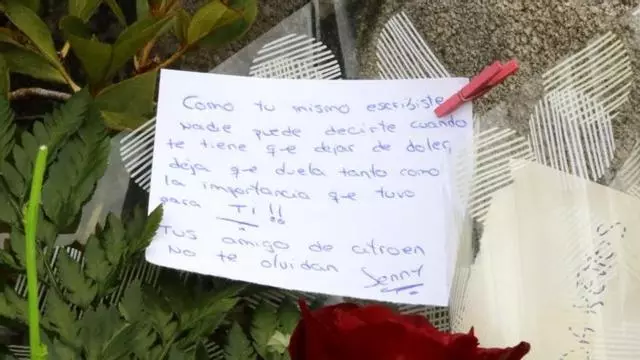 Como tu mismo escribiste
Nadie puede decirte cuando
te tiene que dejar de doler,
deja que duela tanto como
la importancia que tuvo
para TI!!
Tus amigo de citroen
No te olvidan Jenny